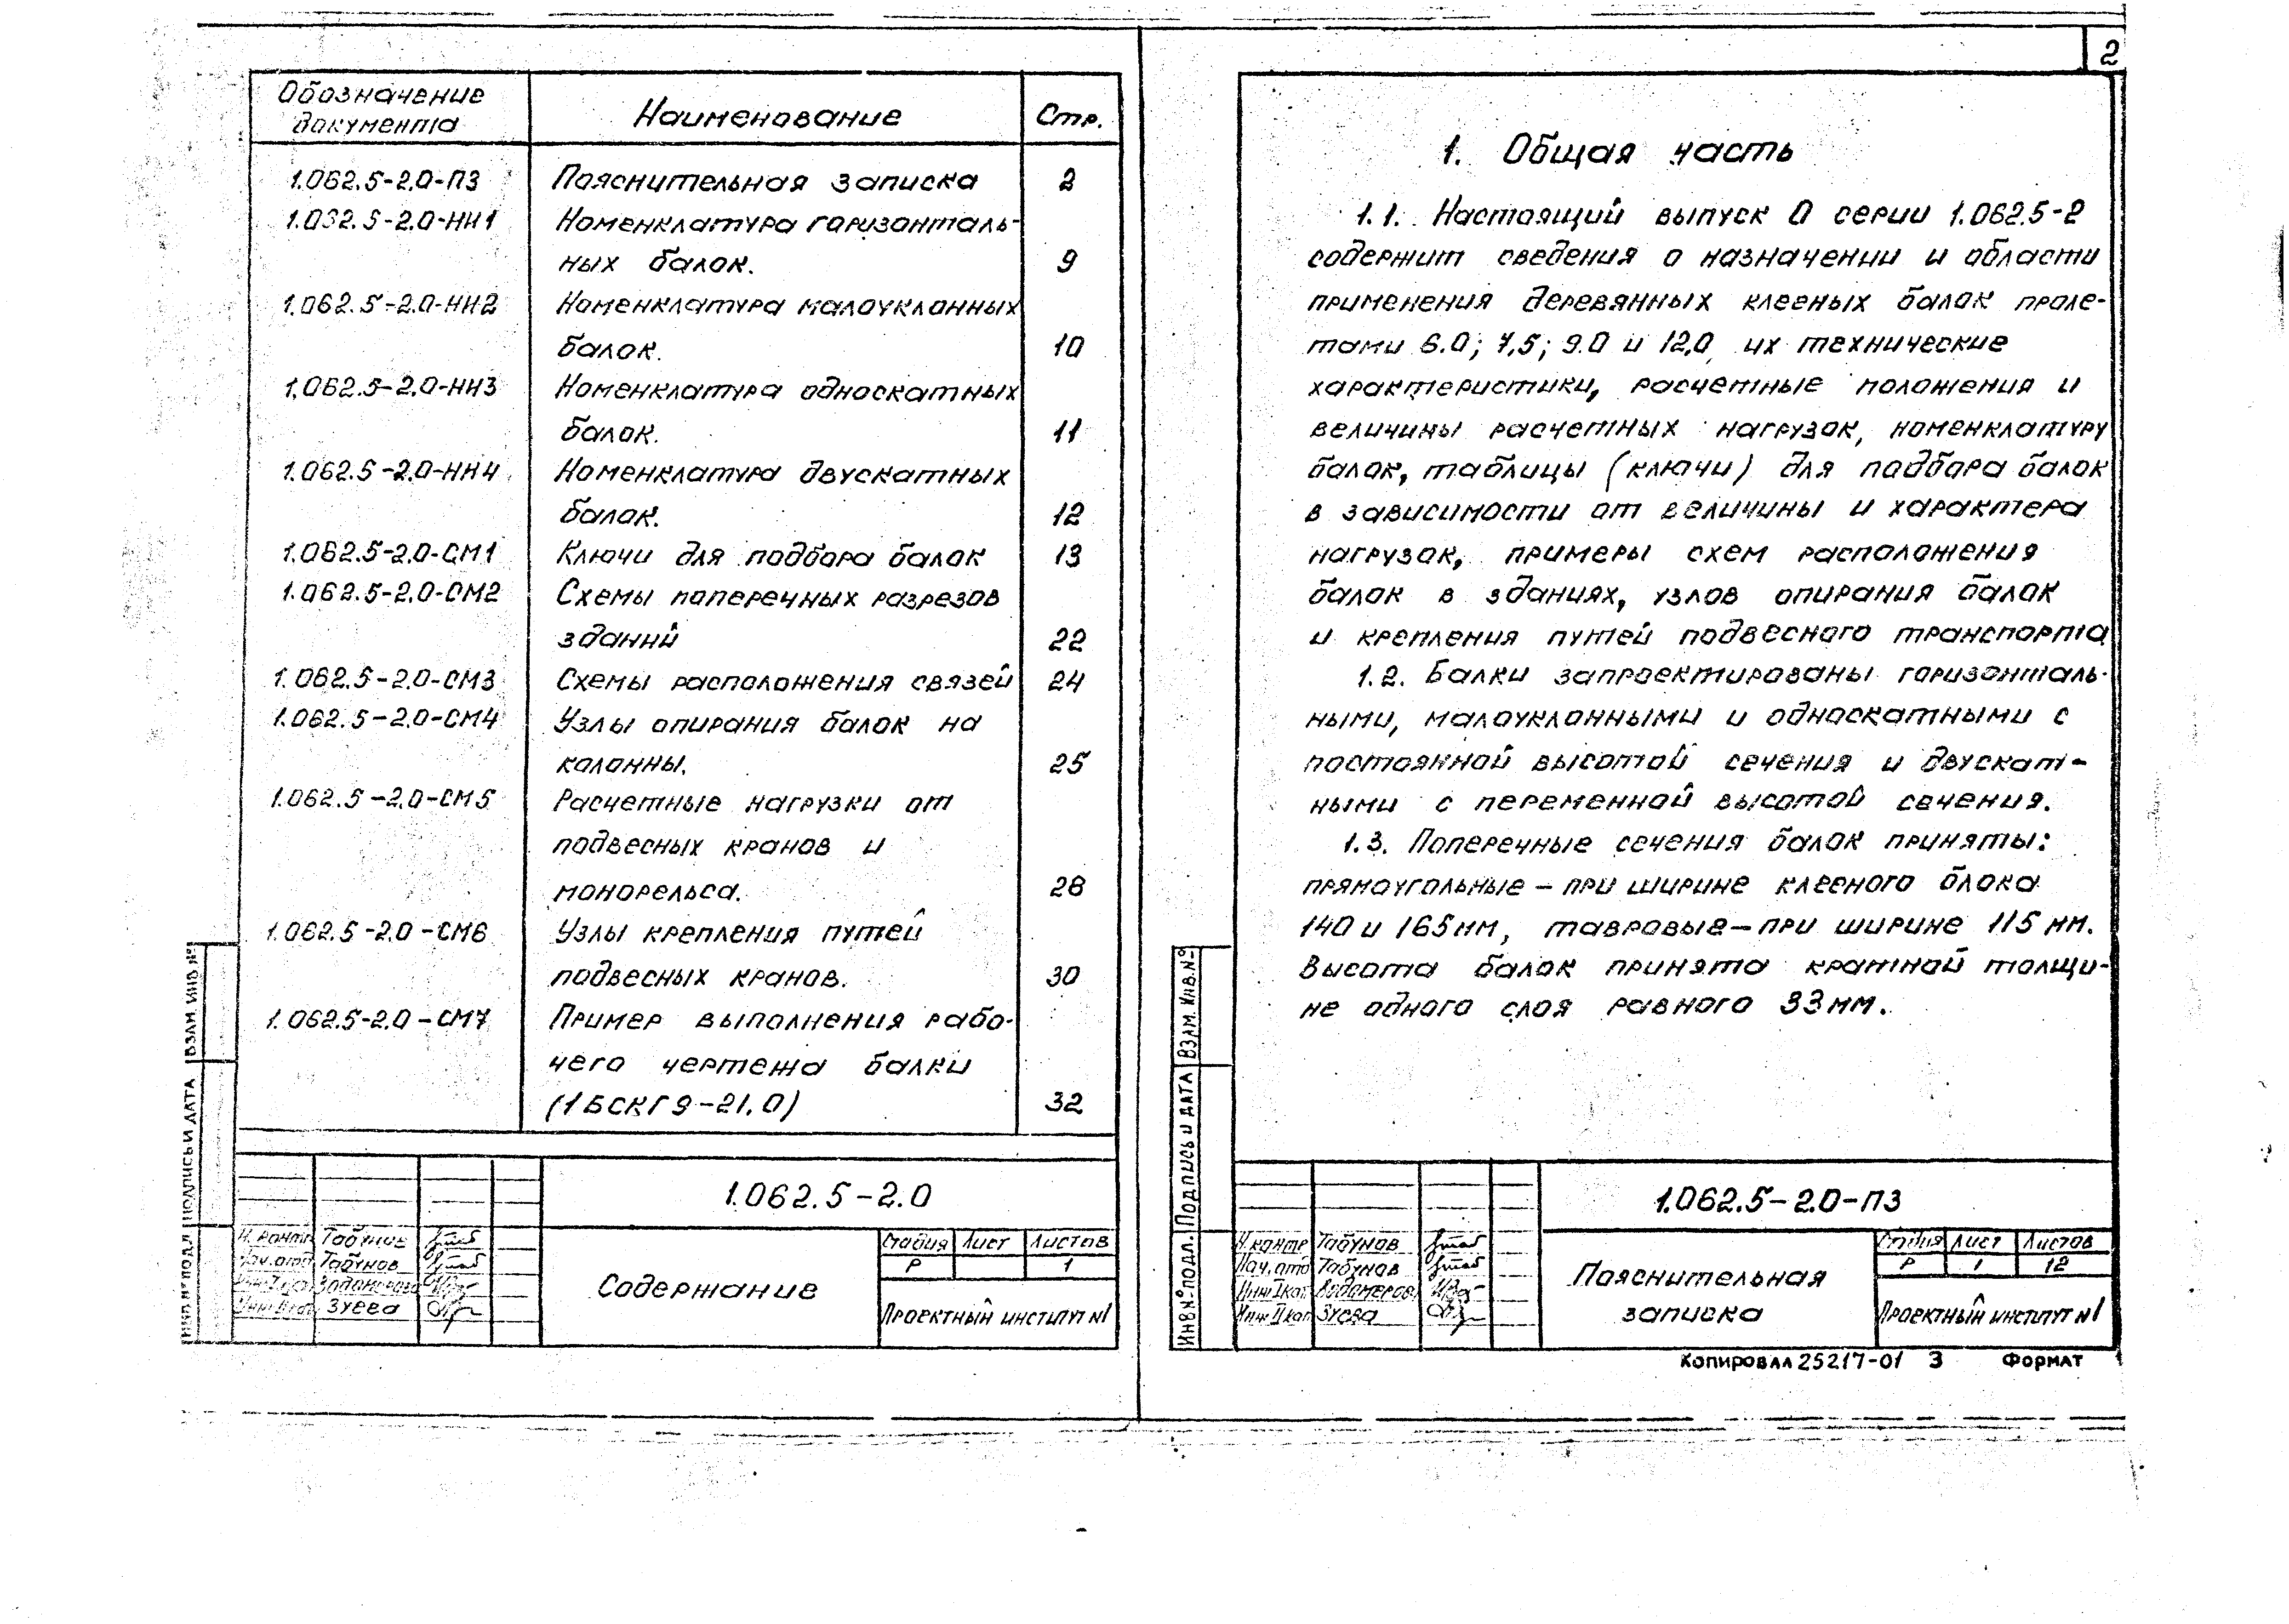 Обозначение документа Наименование Стр.
1.062.5-2.0-ПЗ Пояснительная записка 2
1.062.5-2.0-НИ1 Номенклатура горизонталь-
ных балок. 9
1.062.5-2.0-НИ2 Номенклатура малоуклонных
балок. 10
1.062.5-2.0-НИ3 Номенклатура односкатных
балок. 11
1.062.5-2.0-НИ4 Номенклатура двускатных
балок. 12
1.062.5-2.0-СМ1 Ключи для подбора балок 13
1.062.5-2.0-СМ2 Схемы поперечных разрезов
зданий 22
1.062.5-2.0-СМ3 Схемы расположения связей 24
1.062.5-2.0-СМ4 Узлы опирания балок на
колонны. 25
1.062.5-2.0-СМ5 Расчетные нагрузки от
подвесных кранов и
монорельса. 28
1.062.5-2.0-СМ6 Узлы крепления путей
подвесных кранов. 30
1.062.5-2.0-СМ7 Пример выполнения рабо-
чего чертежа балки
(1БСКГ9-21.0) 32
1.062.5-2.0
Н.контр Табунов
Нач.отд Табунов
Зуева
Содержание
Стадия Лист Листов
Р 1
Проектный институт №1
ВЗАМ. ИНВ №
ПОДПИСЬ И ДАТА
ИНВ № ПОДЛ
2
1. Общая часть
1.1. Настоящий выпуск 0 серии 1.062.5-2
содержит сведения о назначении и области
применения деревянных клееных балок проле-
тами 6.0; 7,5; 9.0 и 12,0 их технические
характеристики, расчетные положения и
величины расчетных нагрузок, номенклатуру
балок, таблицы (ключи) для подбора балок
в зависимости от величины и характера
нагрузок, примеры схем расположения
балок в зданиях, узлов опирания балок
и крепления путей подвесного транспорта
1.2. Балки запроектированы горизонталь-
ными, малоуклонными и односкатными с
постоянной высотой сечения и двускат-
ными с переменной высотой сечения.
1.3. Поперечные сечения балок приняты:
прямоугольные – при ширине клееного блока
140 и 165мм, тавровые – при ширине 115 мм.
Высота балок принята кратной толщи-
не одного слоя равного 33мм.
1.062.5-2.0-ПЗ
Н.контр Табунов
Нач.отд Табунов
Инж I кат
Инж II кат Зуева
Пояснительная
записка
Стадия Лист Листов
Р 1 12
Проектный институт №1
ВЗАМ. ИНВ. №
Подпись и ДАТА
ИНВ № ПОДЛ.
Копировал 25217-01 3 Формат